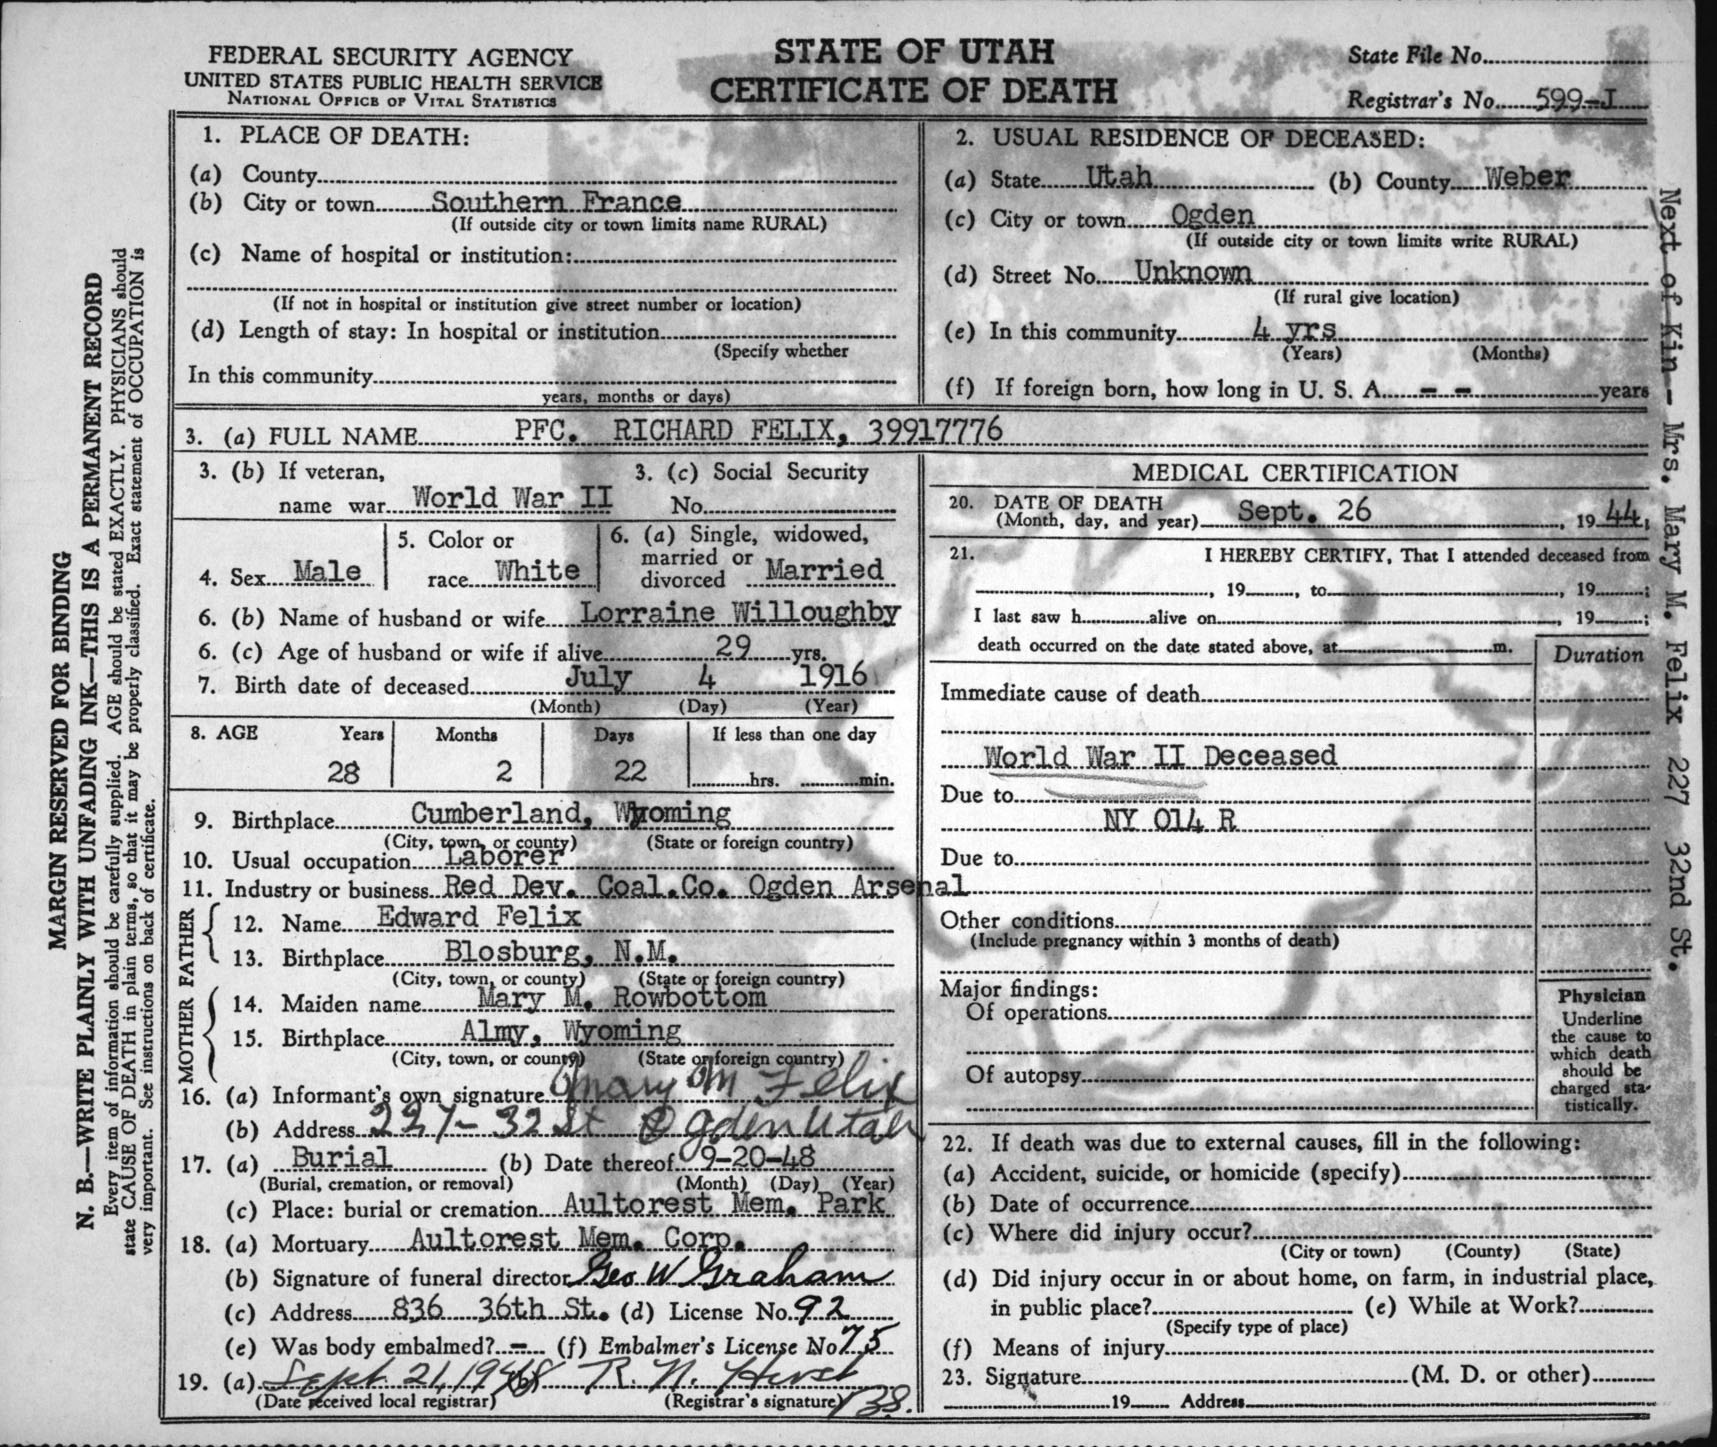 FEDERAL SECURITY AGENCY
UNITED STATES PUBLIC HEALTH SERVICE
NATIONAL OFFICE OF VITAL STATISTICS
STATE OF UTAH
CERTIFICATE OF DEATH
State File No.
Registrar's No. 599-J
1. PLACE OF DEATH:
(a) County
(b) City or town Southern France
(If outside city or town limits name RURAL)
(c) Name of hospital or institution:
(If not in hospital or institution give street number or location)
(d) Length of stay: In hospital or institution
(Specify whether
In this community
years, months or days)
2. USUAL RESIDENCE OF DECEASED:
(a) State Utah (b) County Weber
(c) City or town Ogden
(If outside city or town limits write RURAL)
(d) Street No. Unknown
(If rural give location)
(e) In this community 4 yrs
(Years) (Months)
(f) If foreign born, how long in U. S. A. - - years
3. (a) FULL NAME PFC. RICHARD FELIX, 39917776
3. (b) If veteran,
name war World War II
3. (c) Social Security
No.
4. Sex Male
5. Color or
race White
6. (a) Single, widowed,
married or
divorced Married
6. (b) Name of husband or wife Lorraine Willoughby
6. (c) Age of husband or wife if alive 29 yrs.
7. Birth date of deceased July 4 1916
(Month) (Day) (Year)
8. AGE Years Months Days If less than one day
28 2 22 hrs. min.
9. Birthplace Cumberland, Wyoming
(City, town, or county) (State or foreign country)
10. Usual occupation Laborer
11. Industry or business Red Dev. Coal.Co. Ogden Arsenal
FATHER
12. Name Edward Felix
13. Birthplace Blosburg, N.M.
(City, town, or county) (State or foreign country)
MOTHER
14. Maiden name Mary M. Rowbottom
15. Birthplace Almy, Wyoming
(City, town, or county) (State or foreign country)
16. (a) Informant's own signature Mary M Felix
(b) Address 227- 32 St Ogden Utah
17. (a) Burial (b) Date thereof 9-20-48
(Burial, cremation, or removal) (Month) (Day) (Year)
(c) Place: burial or cremation Aultorest Mem. Park
18. (a) Mortuary Aultorest Mem. Corp.
(b) Signature of funeral director Geo W Graham
(c) Address 836 36th St. (d) License No. 92
(e) Was body embalmed? - (f) Embalmer's License No 75
19. (a) Sept. 21, 1948 (b) R. N. Hirst
(Date received local registrar) (Registrar's signature)
MEDICAL CERTIFICATION
20. DATE OF DEATH
(Month, day, and year) Sept. 26, 1944,
21. I HEREBY CERTIFY, That I attended deceased from
, 19 , to , 19 ;
I last saw h alive on , 19 ;
death occurred on the date stated above, at m.
Duration
Immediate cause of death
World War II Deceased
Due to
NY 014 R
Due to
Other conditions
(Include pregnancy within 3 months of death)
Major findings:
Of operations
Of autopsy
Physician
Underline
the cause to
which death
should be
charged sta-
tistically.
22. If death was due to external causes, fill in the following:
(a) Accident, suicide, or homicide (specify)
(b) Date of occurrence
(c) Where did injury occur?
(City or town) (County) (State)
(d) Did injury occur in or about home, on farm, in industrial place,
in public place? (e) While at Work?
(Specify type of place)
(f) Means of injury
23. Signature (M. D. or other)
19 Address
MARGIN RESERVED FOR BINDING
N. B.—WRITE PLAINLY WITH UNFADING INK—THIS IS A PERMANENT RECORD
Every item of information should be carefully supplied. AGE should be stated EXACTLY. PHYSICIANS should
state CAUSE OF DEATH in plain terms, so that it may be properly classified. Exact statement of OCCUPATION is
very important. See instructions on back of certificate.
Next of Kin - Mrs. Mary M. Felix 227 32nd St.